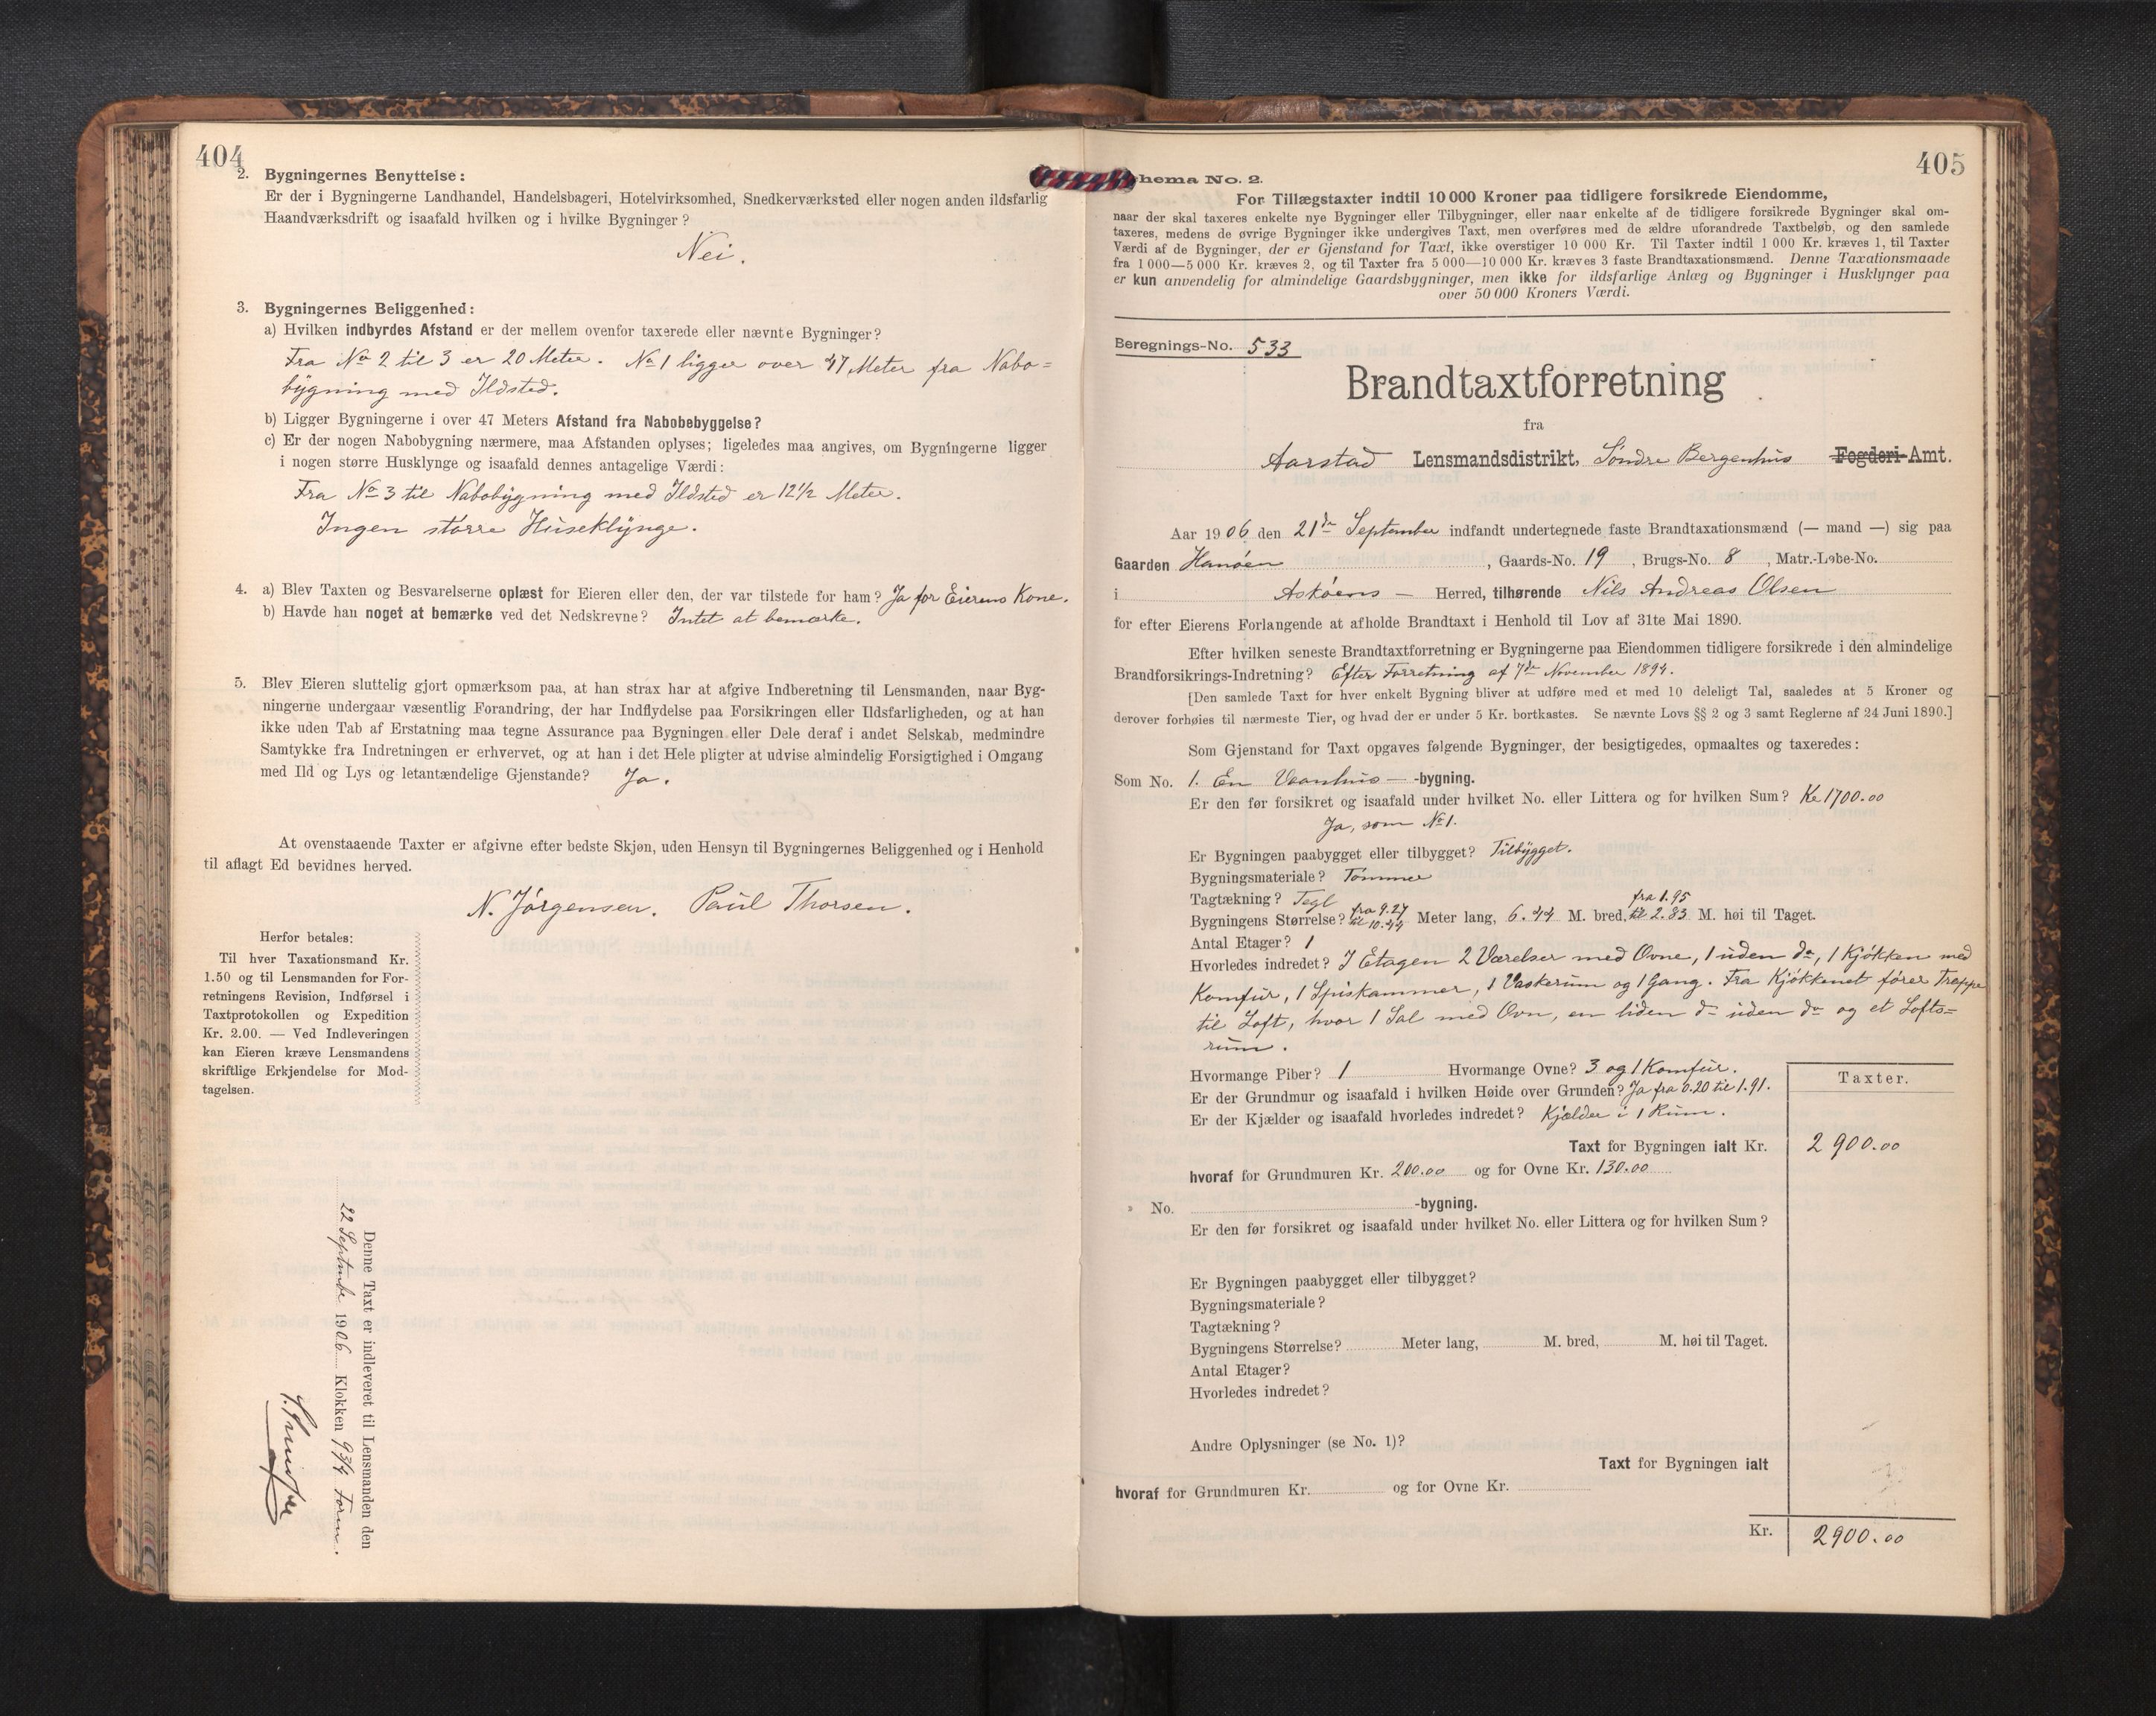 404
2. Bygningernes Benyttelse:
Er der i Bygningerne Landhandel, Handelsbageri, Hotelvirksomhed, Snedkerværksted eller nogen anden ildsfarlig
Haandværksdrift og isaafald hvilken og i hvilke Bygninger?
Nei.
3. Bygningernes Beliggenhed:
a) Hvilken indbyrdes Afstand er der mellem ovenfor taxerede eller nævnte Bygninger?
Fra No 2 til 3 er 20 Meter. No 1 ligger over 47 Meter fra Nabo=
bygning med Ildsted.
b) Ligger Bygningerne i over 47 Meters Afstand fra Nabobebyggelse?
c) Er der nogen Nabobygning nærmere, maa Afstanden oplyses; ligeledes maa angives, om Bygningerne ligger
i nogen større Husklynge og isaafald dennes antagelige Værdi:
Fra No 3 til Nabobygning med Ildsted er 12½ Meter.
Ingen større Huseklynge.
4. a) Blev Taxten og Besvarelserne oplæst for Eieren eller den, der var tilstede for ham? Ja for Eierens Kone.
b) Havde han noget at bemærke ved det Nedskrevne? Intet at bemærke.
5. Blev Eieren sluttelig gjort opmærksom paa, at han strax har at afgive Indberetning til Lensmanden, naar Byg-
ningerne undergaar væsentlig Forandring, der har Indflydelse paa Forsikringen eller Ildsfarligheden, og at han
ikke uden Tab af Erstatning maa tegne Assurance paa Bygningen eller Dele deraf i andet Selskab, medmindre
Samtykke fra Indretningen er erhvervet, og at han i det Hele pligter at udvise almindelig Forsigtighed i Omgang
med Ild og Lys og letantændelige Gjenstande? Ja.
At ovenstaaende Taxter er afgivne efter bedste Skjøn, uden Hensyn til Bygningernes Beliggenhed og i Henhold
til aflagt Ed bevidnes herved.
N. Jørgensen. Paul Thorsen.
Herfor betales:
Til hver Taxationsmand Kr.
1.50 og til Lensmanden for For-
retningens Revision, Indførsel i
Taxtprotokollen og Expedition
Kr. 2.00. — Ved Indleveringen
kan Eieren kræve Lensmandens
skriftlige Erkjendelse for Mod-
tagelsen.
Denne Taxt er indleveret til Lensmanden den
22 September 1906 Klokken 9¾ Form.
405
hema No. 2.
For Tillægstaxter indtil 10 000 Kroner paa tidligere forsikrede Eiendomme,
naar der skal taxeres enkelte nye Bygninger eller Tilbygninger, eller naar enkelte af de tidligere forsikrede Bygninger skal om-
taxeres, medens de øvrige Bygninger ikke undergives Taxt, men overføres med de ældre uforandrede Taxtbeløb, og den samlede
Værdi af de Bygninger, der er Gjenstand for Taxt, ikke overstiger 10 000 Kr. Til Taxter indtil 1 000 Kr. kræves 1, til Taxter
fra 1 000—5 000 Kr. kræves 2, og til Taxter fra 5 000—10 000 Kr. kræves 3 faste Brandtaxationsmænd. Denne Taxationsmaade
er kun anvendelig for almindelige Gaardsbygninger, men ikke for ildsfarlige Anlæg og Bygninger i Husklynger paa
over 50 000 Kroners Værdi.
Beregnings-No. 533
Brandtaxtforretning
fra
Aarstad Lensmandsdistrikt, Søndre Bergenhus Fogderi-Amt.
Aar 1906 den 21de September indfandt undertegnede faste Brandtaxationsmænd (— mand —) sig paa
Gaarden Hanøen, Gaards-No. 19, Brugs-No. 8, Matr.-Løbe-No.
i Askøens — Herred, tilhørende Nils Andreas Olsen
for efter Eierens Forlangende at afholde Brandtaxt i Henhold til Lov af 31te Mai 1890.
Efter hvilken seneste Brandtaxtforretning er Bygningerne paa Eiendommen tidligere forsikrede i den almindelige
Brandforsikrings-Indretning? Efter Forretning af 7de November 1894.
[Den samlede Taxt for hver enkelt Bygning bliver at udføre med et med 10 deleligt Tal, saaledes at 5 Kroner og
derover forhøies til nærmeste Tier, og hvad der er under 5 Kr. bortkastes. Se nævnte Lovs §§ 2 og 3 samt Reglerne af 24 Juni 1890.]
Som Gjenstand for Taxt opgaves følgende Bygninger, der besigtigedes, opmaaltes og taxeredes:
Som No. 1. En Vaanhus — -bygning.
Er den før forsikret og isaafald under hvilket No. eller Littera og for hvilken Sum? Kr 1700.00
Ja, som No 1.
Er Bygningen paabygget eller tilbygget? Tilbygget.
Bygningsmateriale? Tømmer
Tagtækning? Tegl
Bygningens Størrelse? fra 9.27 til 10.44 Meter lang, 6.44 M. bred, fra 1.95 til 2.83 M. høi til Taget.
Antal Etager? 1
Hvorledes indredet? I Etagen 2 Værelser med Ovne, 1 uden do, 1 Kjøkken med
Komfur, 1 Spiskammer, 1 Vaskerum og 1 Gang. Fra Kjøkkenet fører Trappe
til Loft, hvor 1 Sal med Ovn, en liden do uden do og et Lofts=
rum.
Hvormange Piber? 1 Hvormange Ovne? 3 og 1 Komfur.
Er der Grundmur og isaafald i hvilken Høide over Grunden? Ja fra 0.20 til 1.91.
Er der Kjælder og isaafald hvorledes indredet? Kjælder i 1 Rum.
Taxter.
Taxt for Bygningen ialt Kr. 2 900.00
hvoraf for Grundmuren Kr. 200.00 og for Ovne Kr. 130.00
» No. -bygning.
Er den før forsikret og isaafald under hvilket No. eller Littera og for hvilken Sum?
Er Bygningen paabygget eller tilbygget?
Bygningsmateriale?
Tagtækning?
Bygningens Størrelse? Meter lang, M. bred, M. høi til Taget.
Antal Etager?
Hvorledes indredet?
Andre Oplysninger (se No. 1)?
Taxt for Bygningen ialt
hvoraf for Grundmuren Kr. og for Ovne Kr.
Kr. 2900.00